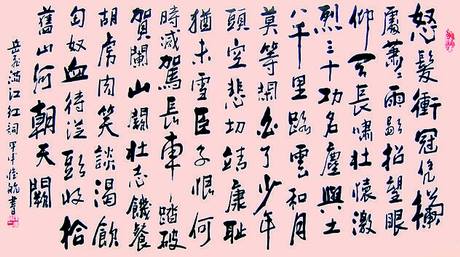 怒髮衝冠凭欄
處蕭〻雨歇抬望眼
仰天長嘯壯懷激
烈三十功名塵與土
八千里路雲和月
莫等閑白了少年
頭空悲切靖康恥
猶未雪臣子恨何
時滅駕長車踏破
賀蘭山闕壯志饑餐
胡虜肉笑談渴飲
匈奴血待從頭收拾
舊山河朝天闕
岳飛滿江红詞 書